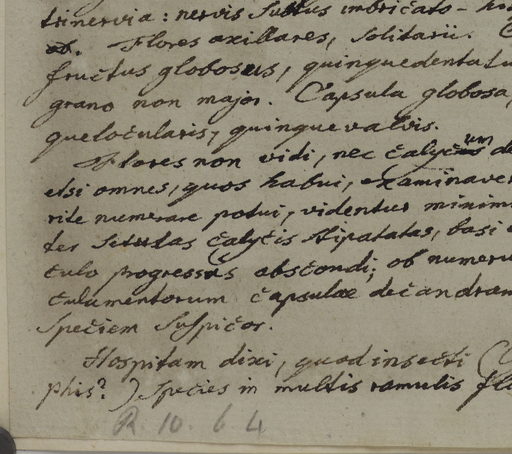 trinervia: nervis subtus imbricato-
Flores axillares, solitarii.
fructus globosus, quinquedentatu
grano non major. Capsula globosa,
quelocularis, quinquevalvis.
Flores non vidi, nec calycum de
etsi omnes, quos habui, examinaver
rite numerare potui, videntur minim
ter setulas calycis stipatatas, basi
culo progressus abscondi; ob numeru
culamentorum capsulae decandram
Speciem suspicor.
Hospitam dixi, quod insecti (
phis?) species in multis ramulis flo
R. 10. 6 4